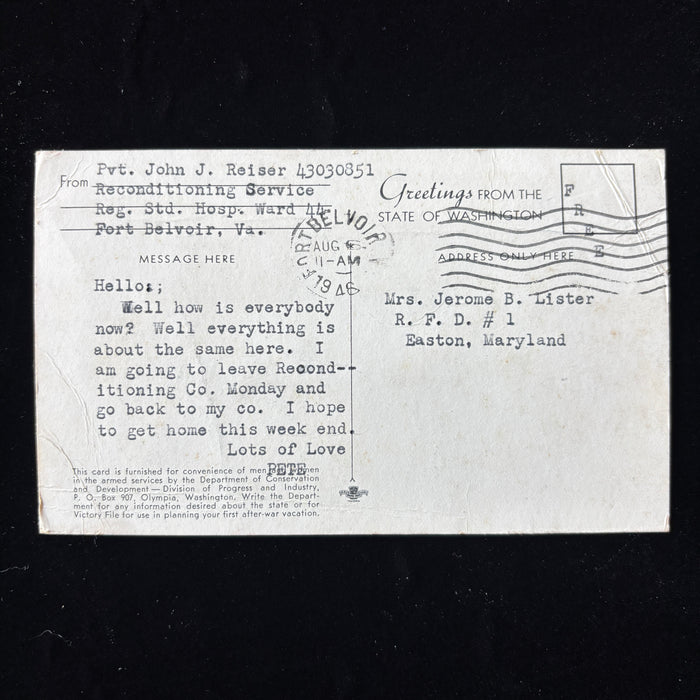 From Pvt. John J. Reiser 43030851
Reconditioning Service
Reg. Std. Hosp. Ward 44
Fort Belvoir, Va.
Greetings FROM THE
STATE OF WASHINGTON
FREE
FORT BELVOIR
AUG
11-AM
1946
MESSAGE HERE
ADDRESS ONLY HERE
Hello:;
Well how is everybody
now? Well everything is
about the same here. I
am going to leave Recond--
itioning Co. Monday and
go back to my co. I hope
to get home this week end.
Lots of Love
PETE
Mrs. Jerome B. Lister
R. F. D. # 1
Easton, Maryland
This card is furnished for convenience of men and women
in the armed services by the Department of Conservation
and Development — Division of Progress and Industry,
P. O. Box 907, Olympia, Washington. Write the Depart-
ment for any information desired about the state or for
Victory File for use in planning your first after-war vacation.